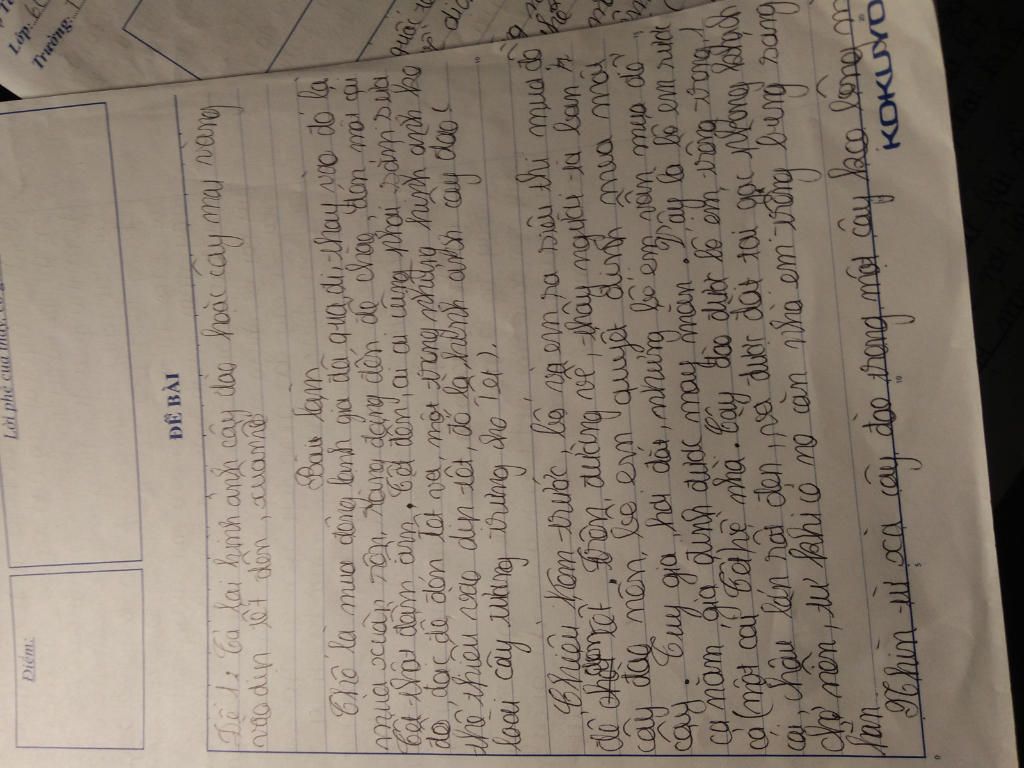 Lớp:
Trường:
Lời phê của thầy cô g
Điểm:
ĐỀ BÀI
Đề 1: Tả lại hình ảnh cây đào hoặc cây mai vàng
vào dịp tết đến, xuân về
Bài làm
Thế là mùa đông lạnh giá đã qua đi, thay vào đó là
mùa xuân rộn ràng đang đến để chào đón mọi cái
Tết thật đầm ấm. Tết đến, ai ai cũng phải sắm sửa
đồ đạc để đón Tết và, một trong những hình ảnh ko
thể thiếu vào dịp tết, đó là hình ảnh cây đào (
loài cây tượng trưng cho Tết).
Chiều hôm trước, bố và em ra siêu thị mua đồ
để Tết. Trên đường về, thấy người ta bán
cây đào nên bố em quyết định mua một
cây. Tuy giá hơi đắt, nhưng bố em vẫn mua để
cả năm gia đình được may mắn. Đây là bố em
cả một cái Tết về nhà. Cây đào được bố em trồng trong
cái chậu lớn rất đẹp, và được đặt tại góc phòng khách
cho nên, từ khi có nó căn nhà em trông bừng sáng
hẳn
Nhìn từ xa cây đào trông như một cây kẹo bông
KOKUYO